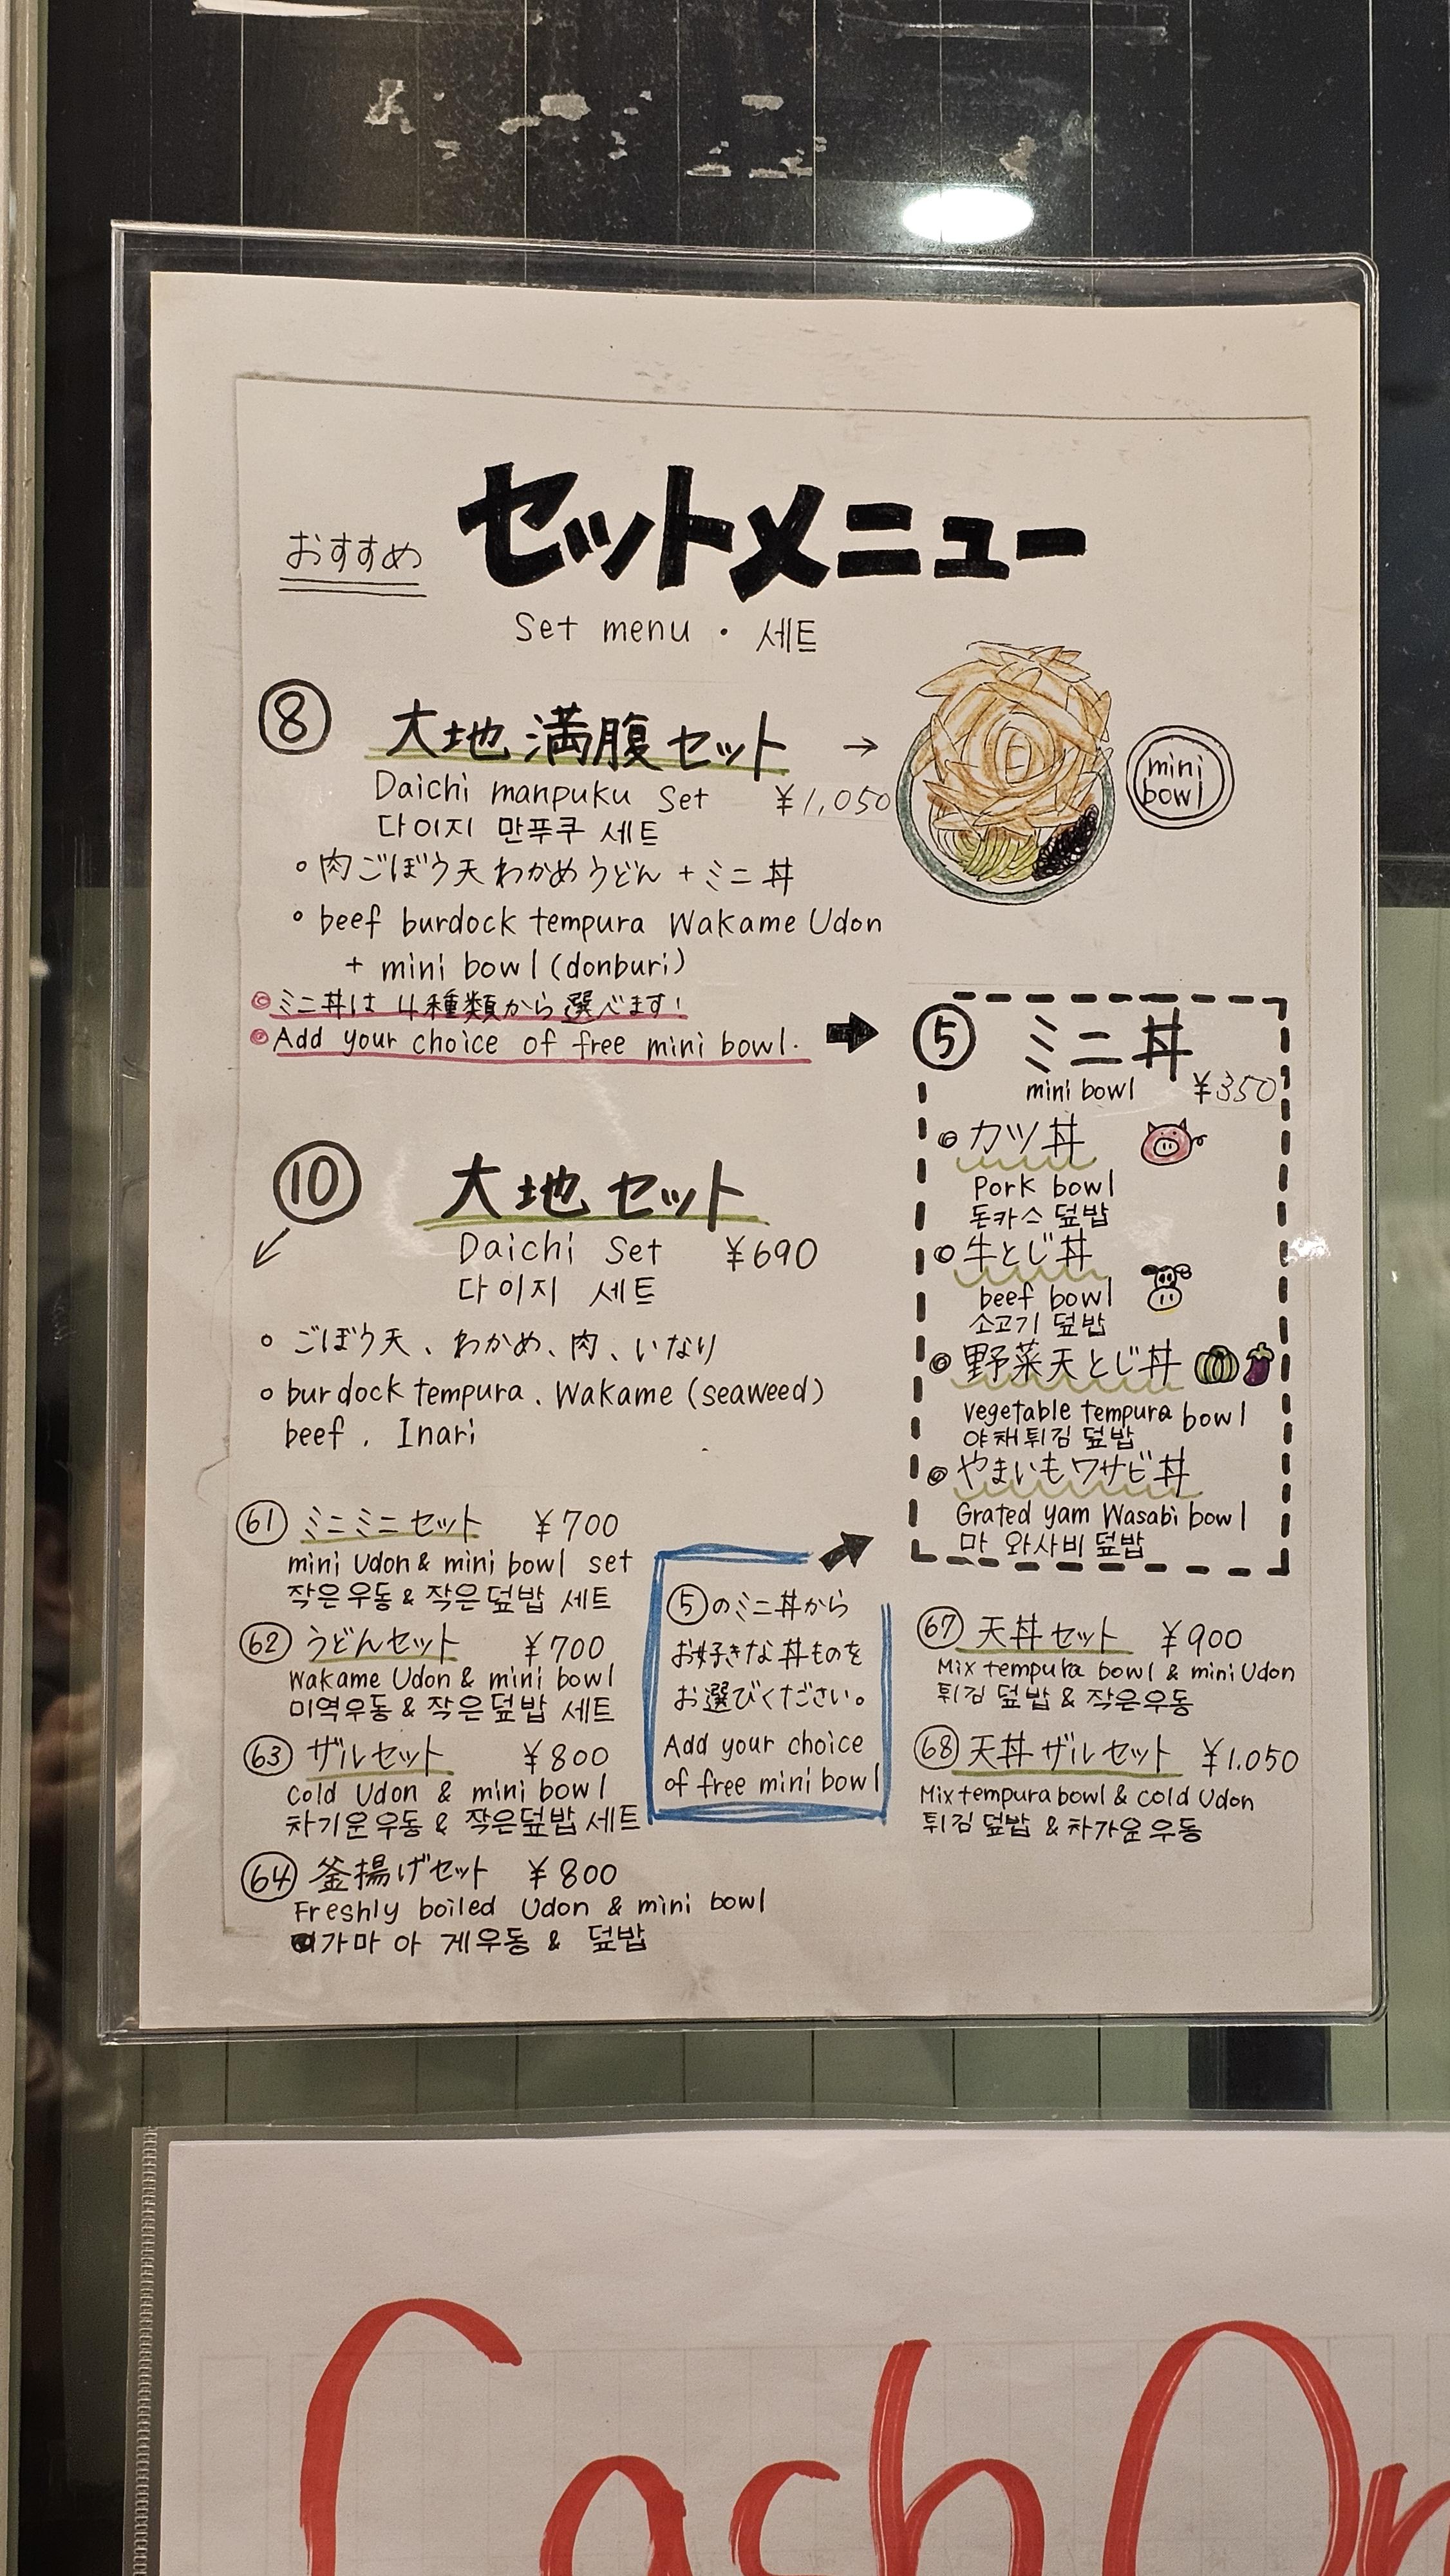 おすすめ
セットメニュー
Set menu ・ 세트
⑧ 大地満腹セット →
mini
bowl
Daichi manpuku Set ¥1,050
다이지 만푸쿠 세트
○ 肉ごぼう天わかめうどん + ミニ丼
○ beef burdock tempura Wakame Udon
+ mini bowl (donburi)
◎ ミニ丼は 4種類から選べます!
◎ Add your choice of free mini bowl.
⑩ 大地セット
Daichi Set ¥690
다이지 세트
○ ごぼう天、わかめ、肉、いなり
○ burdock tempura. Wakame (seaweed)
beef. Inari
⑤ ミニ丼
mini bowl ¥350
◎ カツ丼
Pork bowl
돈카스 덮밥
◎ 牛とじ丼
beef bowl
소고기 덮밥
◎ 野菜天とじ丼
vegetable tempura bowl
야채튀김 덮밥
◎ やまいもワサビ丼
Grated yam Wasabi bowl
마 와사비 덮밥
61 ミニミニセット ¥700
mini Udon & mini bowl set
작은우동 & 작은덮밥 세트
62 うどんセット ¥700
Wakame Udon & mini bowl
미역우동 & 작은덮밥 세트
63 ザルセット ¥800
Cold Udon & mini bowl
차기운우동 & 작은덮밥 세트
64 釜揚げセット ¥800
Freshly boiled Udon & mini bowl
가마 아 게우동 & 덮밥
⑤のミニ丼から
お好きな丼ものを
お選びください。
Add your choice
of free mini bowl
67 天丼セット ¥900
Mix tempura bowl & mini Udon
튀김 덮밥 & 작은우동
68 天丼ザルセット ¥1.050
Mix tempura bowl & cold Udon
튀김 덮밥 & 차가운우동
Cash On